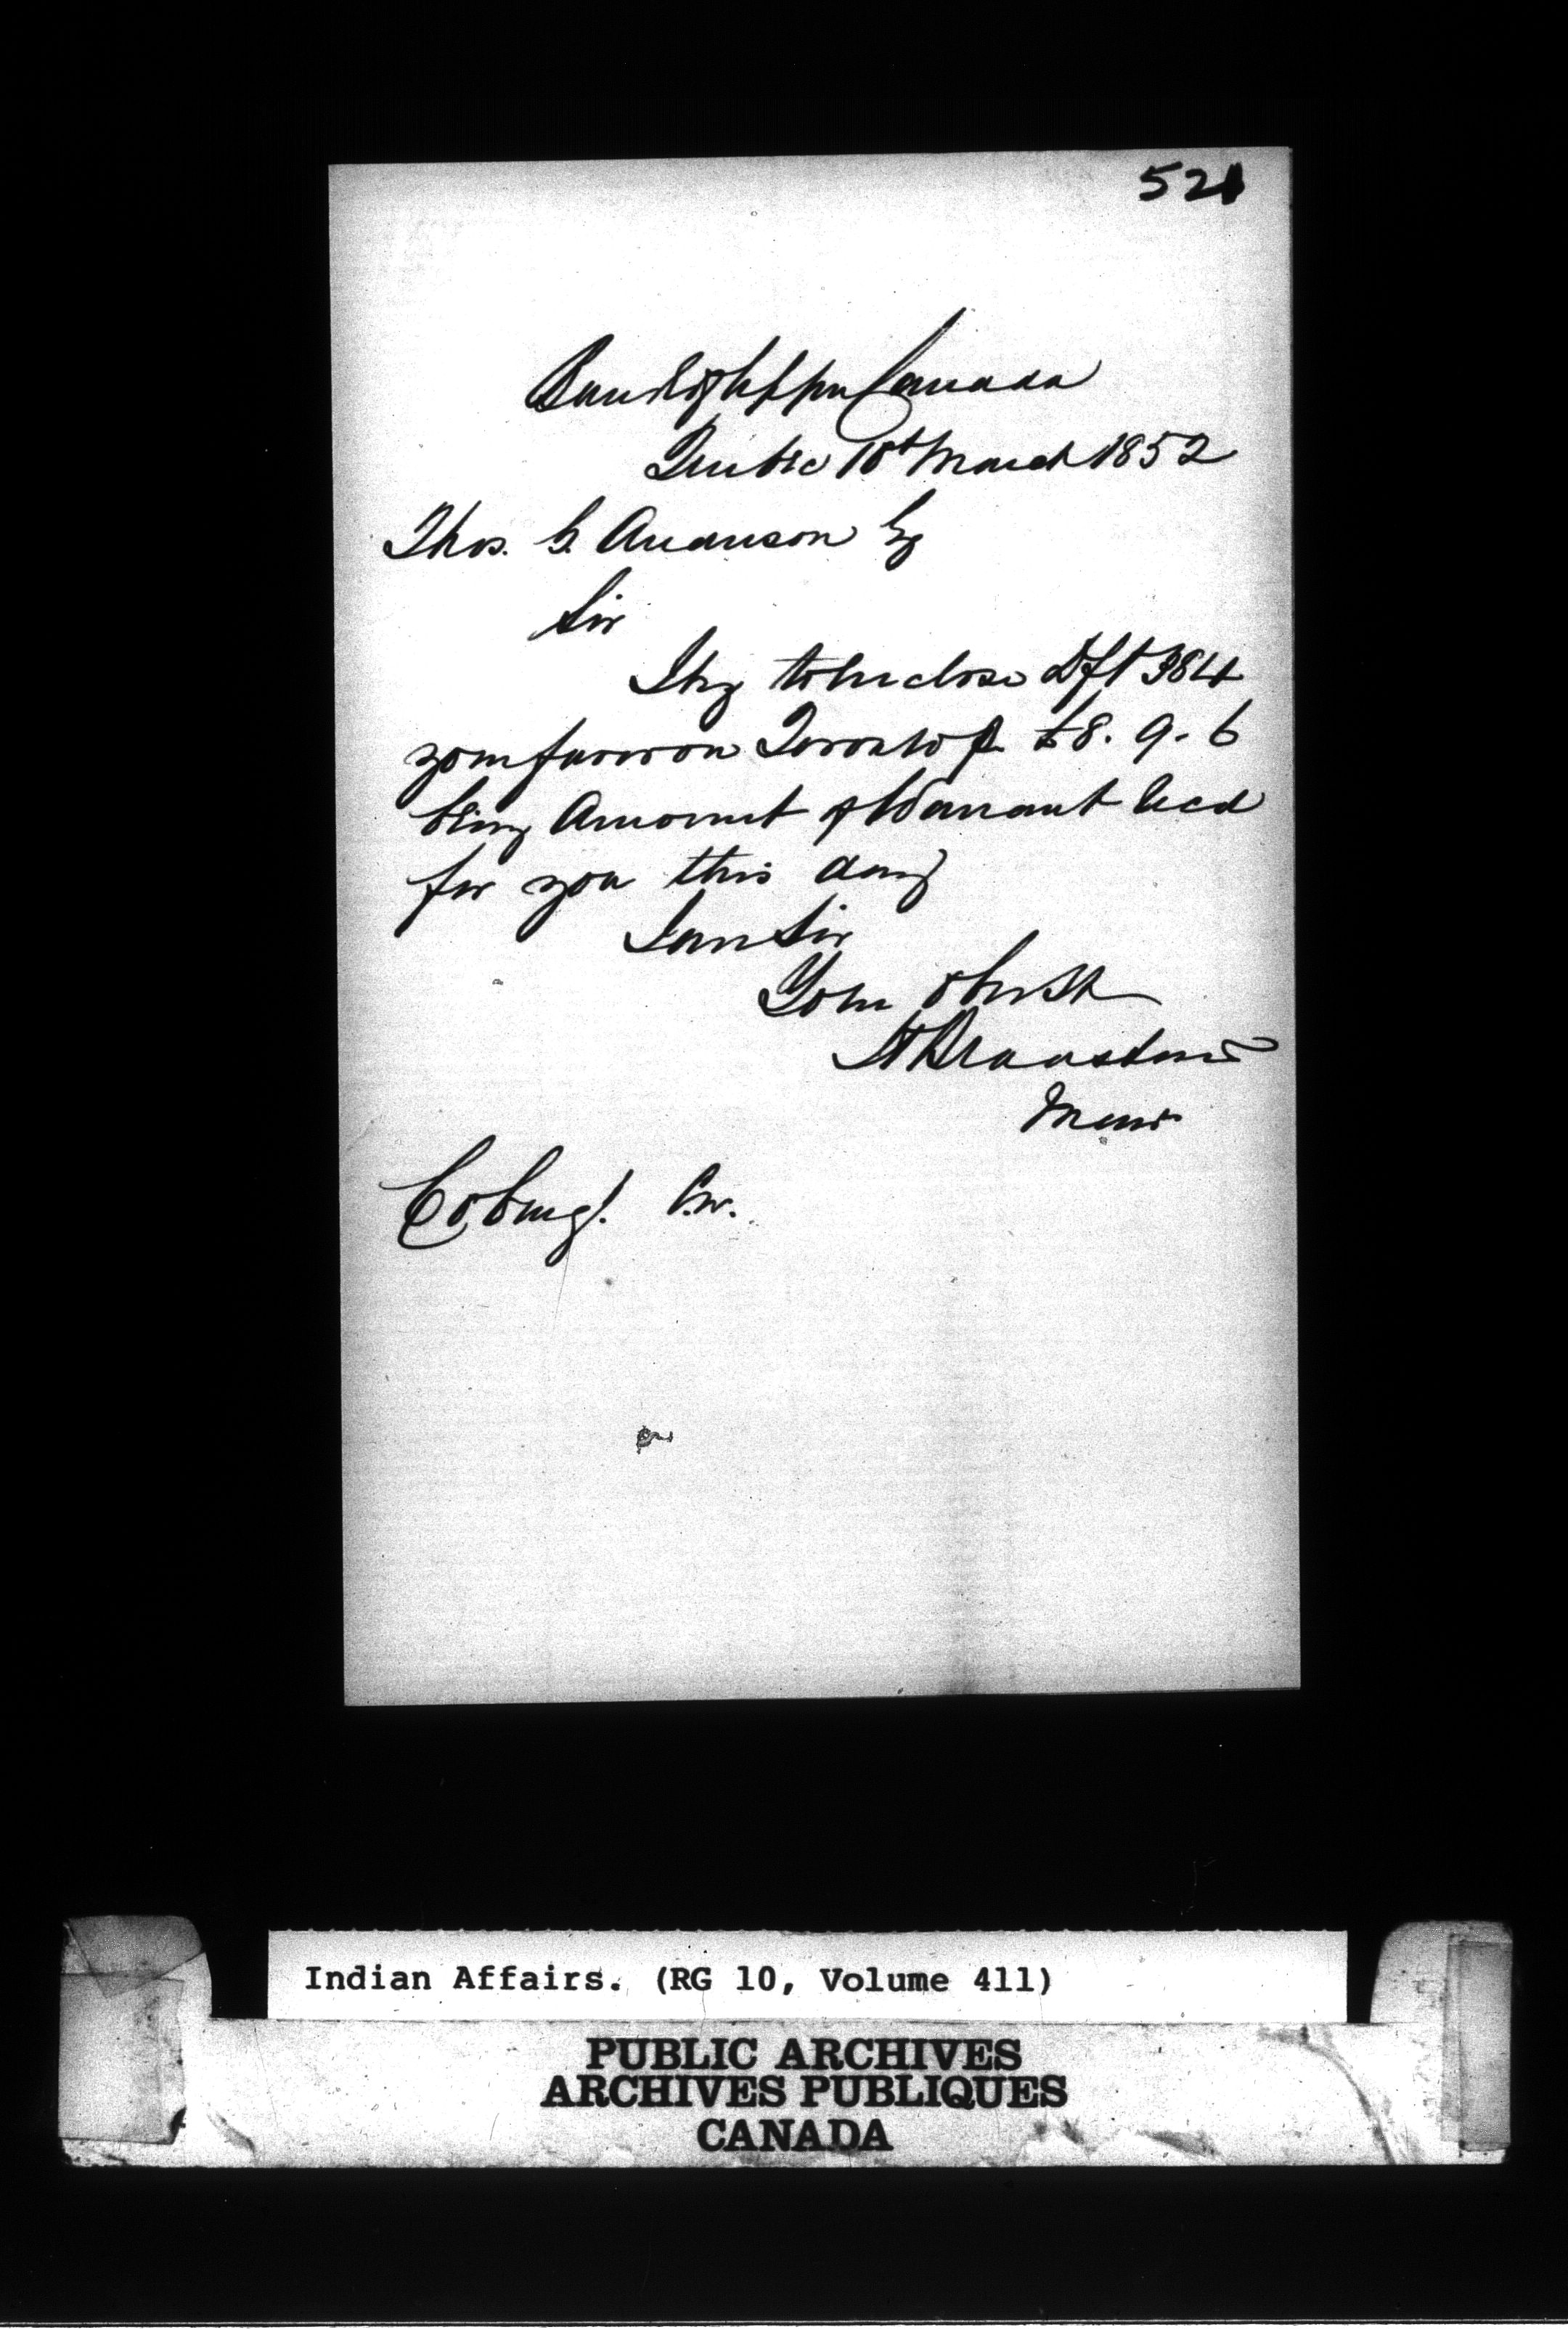 521
Bank of Upper Canada
Quebec 10th March 1852
Thos. G. Anderson Esq
Sir
I beg to Inclose Dft 384
your favor on Toronto for £8. 9. 6
being Amount of Warrant Recd
for you this day
I am Sir
Your Ob Srvt
Manr
Cobourg. C.W.
Indian Affairs. (RG 10, Volume 411)
PUBLIC ARCHIVES
ARCHIVES PUBLIQUES
CANADA